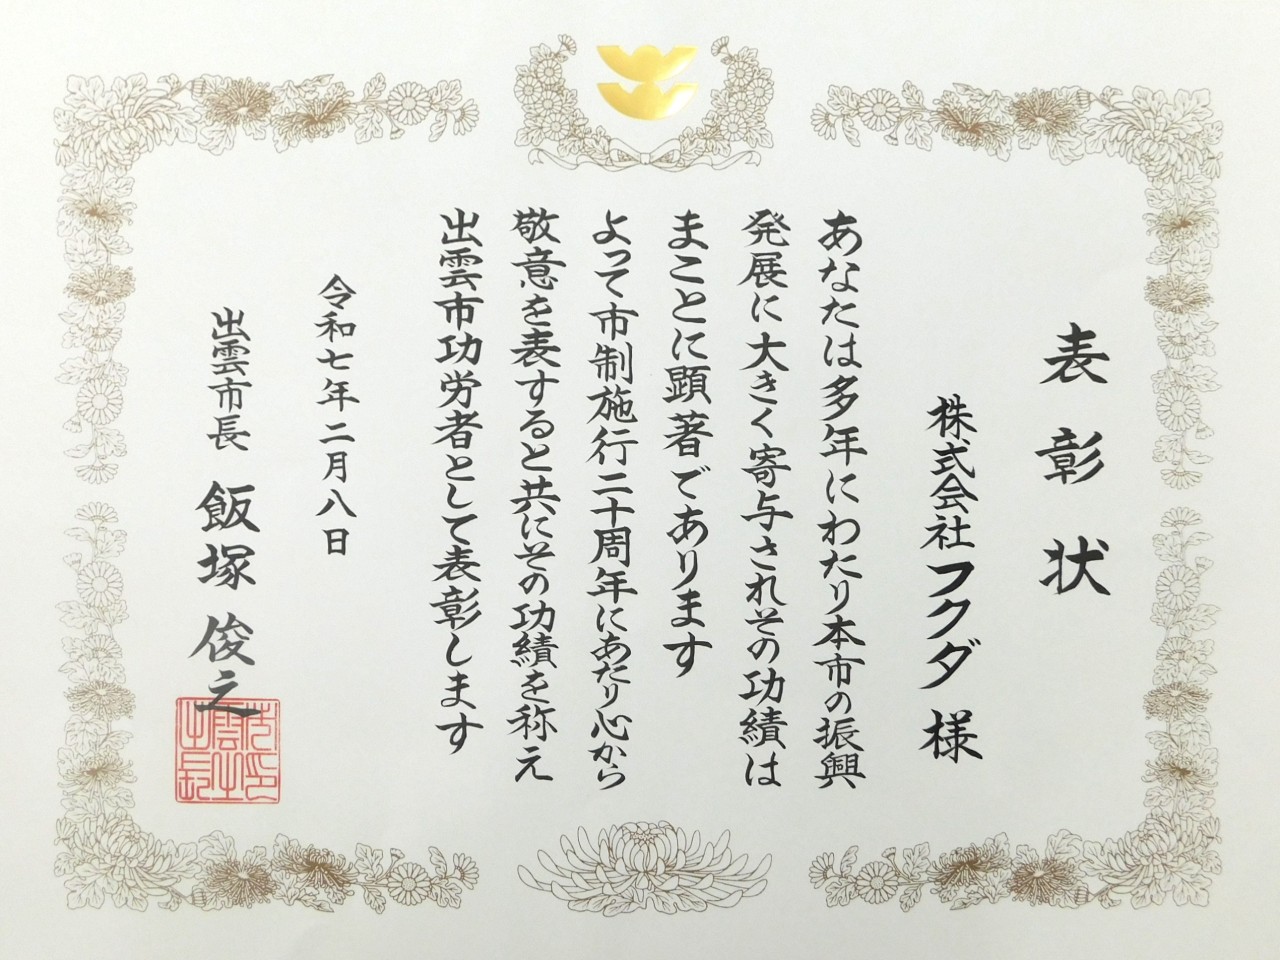 表彰状
株式会社フクダ様
あなたは多年にわたり本市の振興
発展に大きく寄与されその功績は
まことに顕著であります
よって市制施行二十周年にあたり心から
敬意を表すると共にその功績を称え
出雲市功労者として表彰します
令和七年二月八日
出雲市長 飯塚俊之